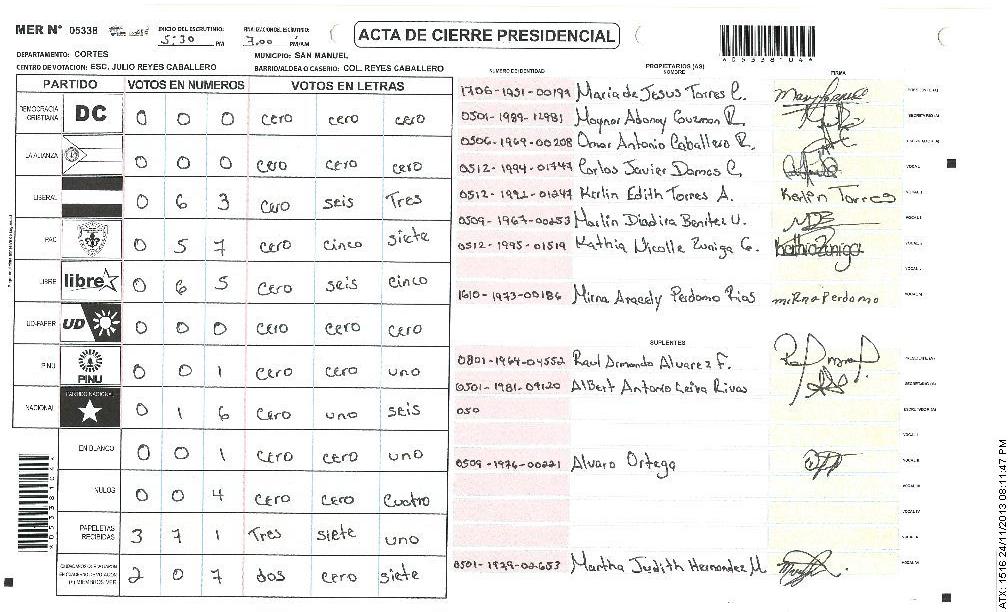 MER N° 05338
INICIO DEL ESCRUTINIO: 5:30 PM
FINALIZACION DEL ESCRUTINIO: 7.00 PM/AM
ACTA DE CIERRE PRESIDENCIAL
A053381044
DEPARTAMENTO: CORTES
MUNICIPIO: SAN MANUEL
CENTRO DE VOTACION: ESC. JULIO REYES CABALLERO
BARRIO/ALDEA O CASERIO: COL. REYES CABALLERO
PARTIDO VOTOS EN NUMEROS VOTOS EN LETRAS
DEMOCRACIA CRISTIANA DC 0 0 0 cero cero cero
LA ALIANZA 0 0 0 cero cero cero
LIBERAL 0 6 3 cero seis Tres
PAC 0 5 7 cero cinco siete
LIBRE libre 0 6 5 cero seis cinco
UD-FAPER UD 0 0 0 cero cero cero
PINU PINU 0 0 1 cero cero uno
NACIONAL PARTIDO NACIONAL 0 1 6 cero uno seis
EN BLANCO 0 0 1 cero cero uno
NULOS 0 0 4 cero cero cuatro
PAPELETAS RECIBIDAS 3 7 1 Tres siete uno
2 0 7 dos cero siete
NUMERO DE IDENTIDAD
PROPIETARIOS (AS)
NOMBRE
FIRMA
1706-1951-00199 Maria de Jesus Torres C.
0501-1989-12981 Maynor Adonay Guzman R.
0506-1969-00208 Omar Antonio Caballero R.
0512-1994-01747 Carlos Javier Damas C.
0512-1992-01247 Kerlin Edith Torres A. Kerlin Torres
0509-1967-00253 Marlin Diadira Benitez U.
0512-1995-01519 Kathia Nicolle Zuniga G. Kathia Zuniga
1610-1973-00186 Mirna Aracely Perdomo Rias mirna perdomo
SUPLENTES
0801-1964-04552 Raul Armando Alvarez F.
0501-1981-09120 Albert Antonio Leiva Rivas
050
0509-1976-00221 Alvaro Ortega
0501-1979-02653 Martha Judith Hernandez M
ATX: 1516 24/11/2013 08:11:47 PM